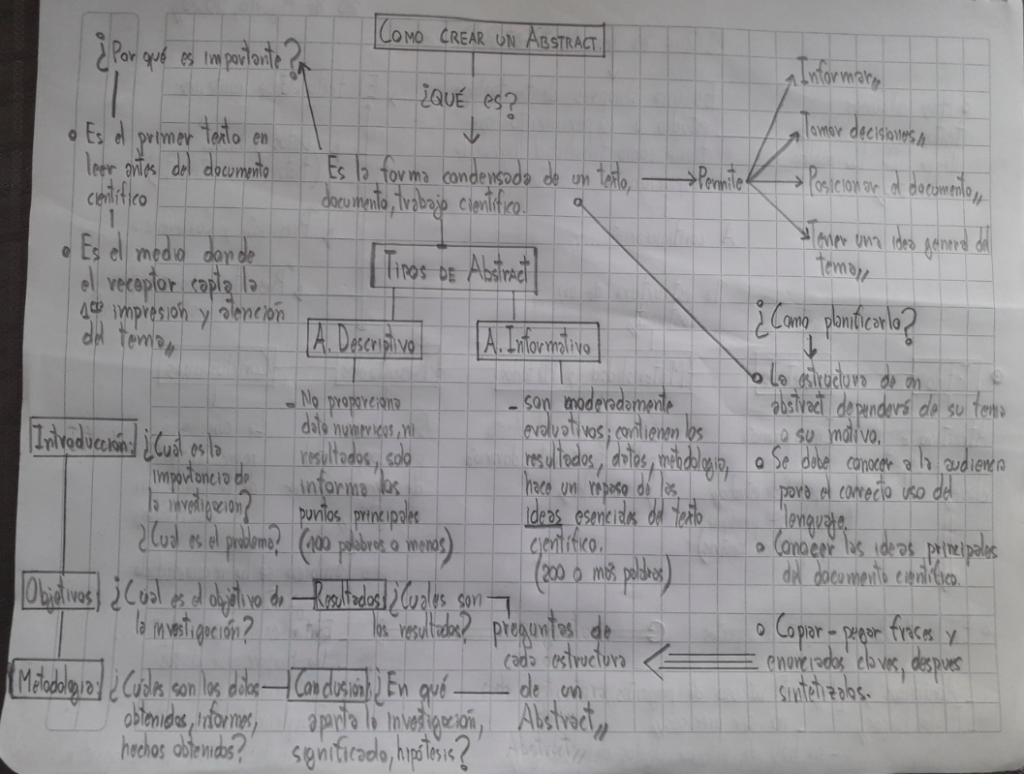 COMO CREAR UN ABSTRACT
¿QUÉ es?
Es la forma condensada de un texto,
documento, trabajo científico.
¿Por qué es importante?
o Es el primer texto en
leer antes del documento
científico
o Es el medio donde
el receptor capta la
1era impresión y atención
del tema,,
Permite
Informar,,
Tomar decisiones,,
Posicionar el documento,,
Tener una idea general del
tema,,
TIPOS DE ABSTRACT
A. Descriptivo
- No proporciona
dato numericos, ni
resultados, solo
informa los
puntos principales
(100 palabras o menos)
A. Informativo
- son moderadamente
evaluativos; contienen los
resultados, datos, metodologia,
hace un repaso de las
ideas esenciales del texto
científico.
(200 o más palabras)
¿Como planificarlo?
o La estructura de un
abstract dependerá de su tema
o su motivo.
o Se debe conocer a la audiencia
para el correcto uso del
lenguaje.
o Conocer las ideas principales
del documento científico.
o Copiar-pegar fraces y
enunciados claves, despues
sintetizalas.
Introducción:
¿Cuál es la
importancia de
la investigación?
¿Cuál es el problema?
Objetivos:
¿Cuál es el objetivo de
la investigación?
Resultados:
¿Cuales son
los resultados?
Metodologia:
¿Cuáles son los datos
obtenidos, informes,
hechos obtenidos?
Conclusión:
¿En qué
aporta la investigación,
significado, hipótesis?
preguntas de
cada estructura
de un
Abstract,,